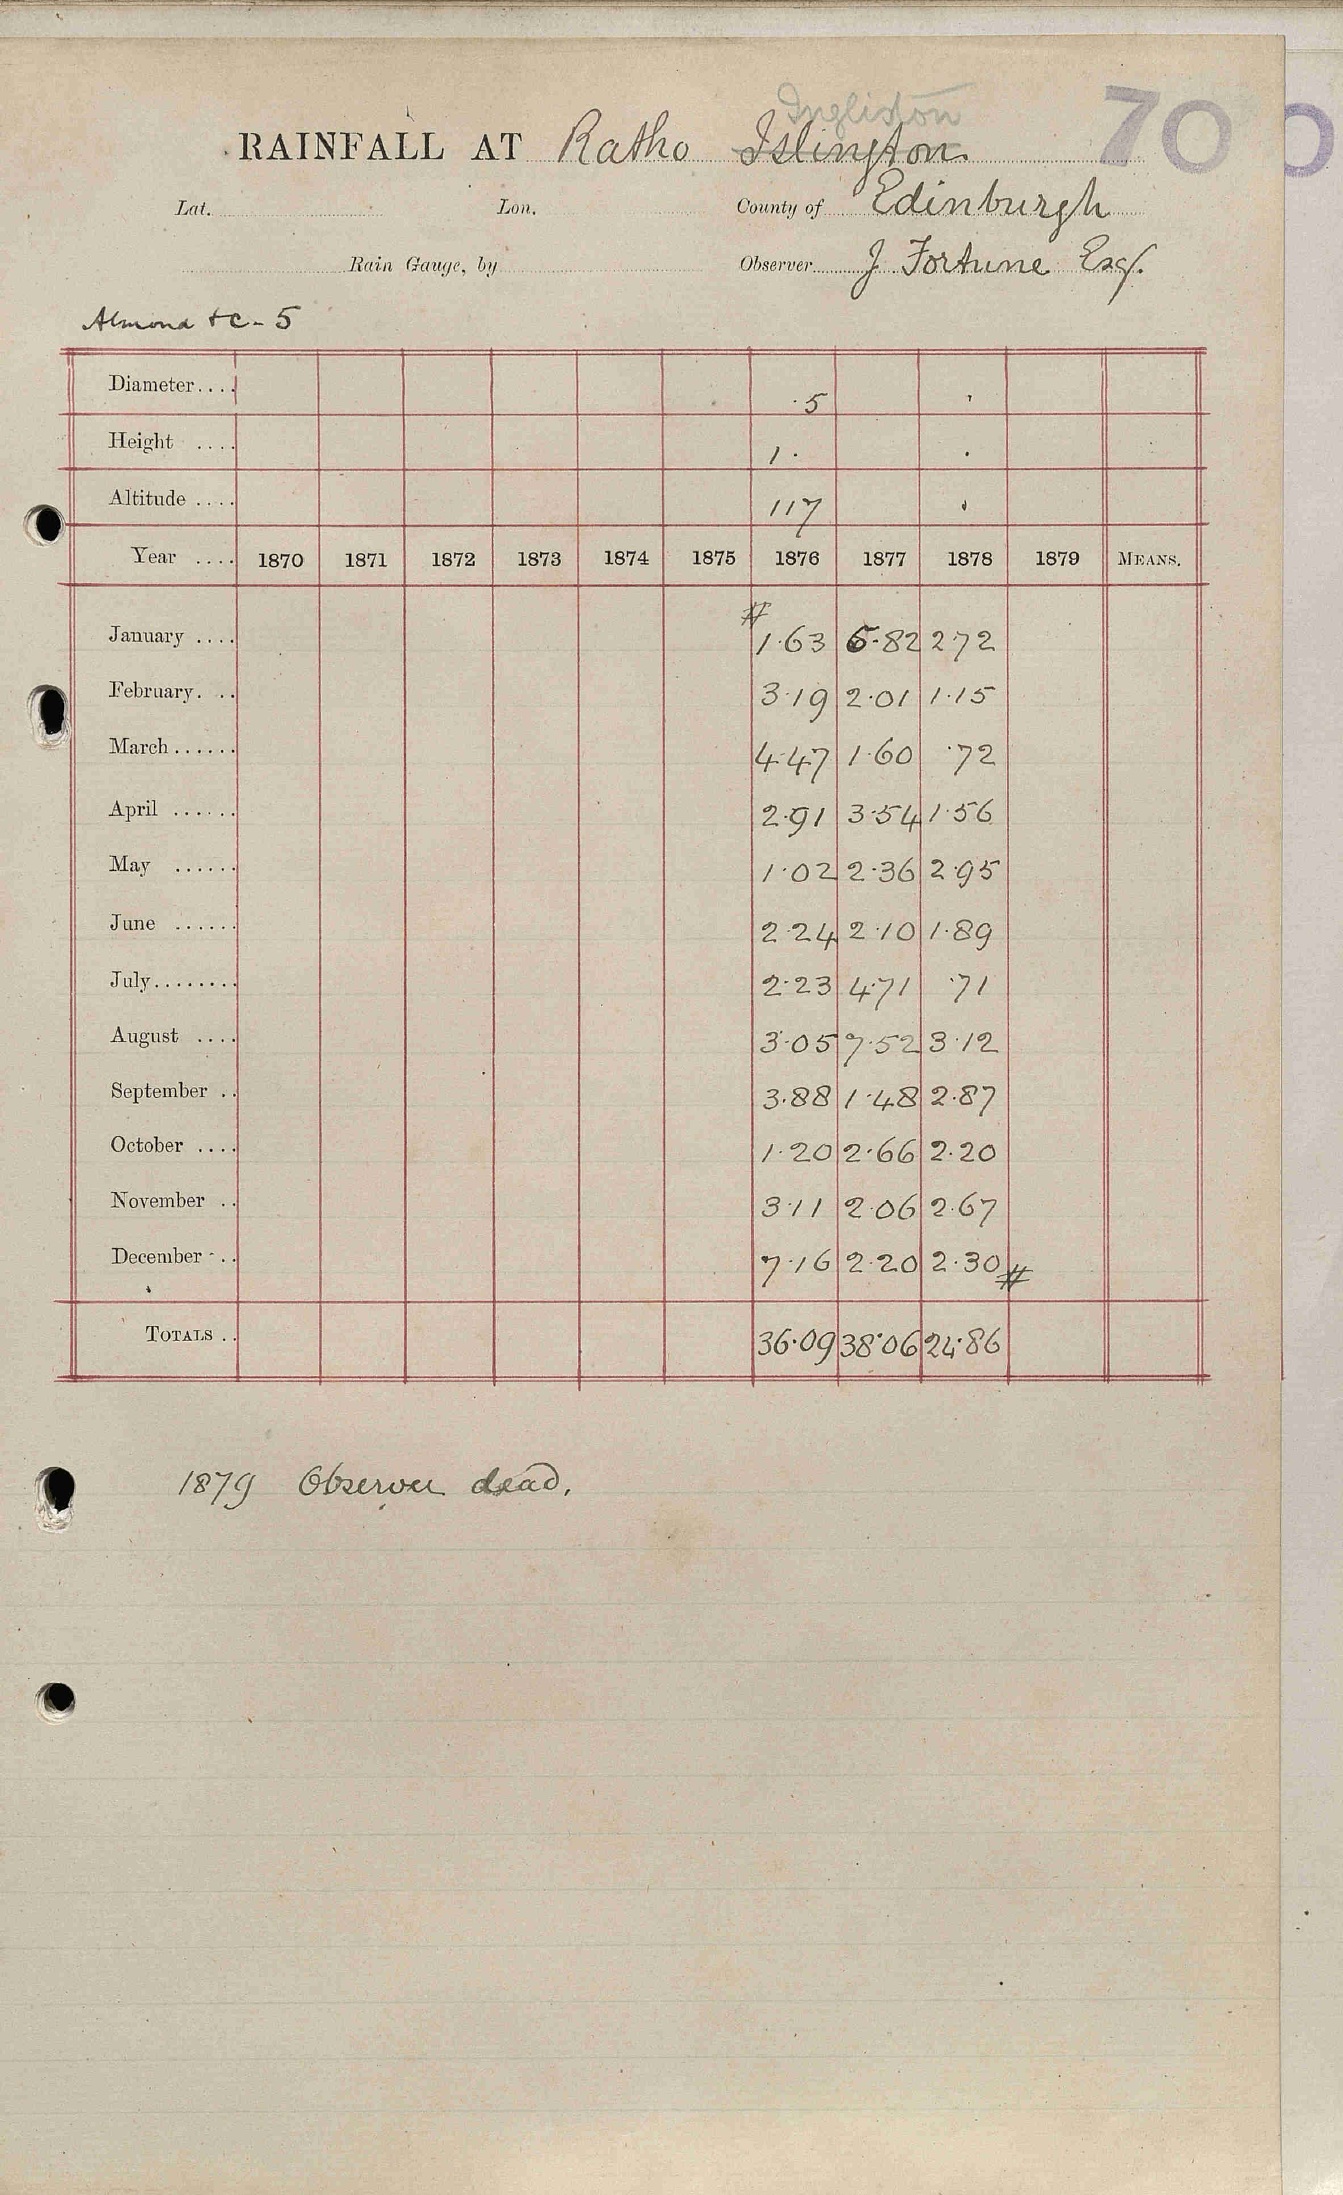 Ingliston
RAINFALL AT Ratho Islington 70
Lat. Lon. County of Edinburgh
Rain Gauge, by Observer J Fortune Esq.
Almond &c - 5
Diameter.... ·5 "
Height .... 1· "
Altitude .... 117 "
Year .... 1870 1871 1872 1873 1874 1875 1876 1877 1878 1879 MEANS.
#
January .... 1·63 5·82 2·72
February. .. 3·19 2·01 1·15
March...... 4·47 1·60 ·72
April ...... 2·91 3·54 1·56
May ...... 1·02 2·36 2·95
June ...... 2·24 2·10 1·89
July........ 2·23 4·71 ·71
August .... 3·05 7·52 3·12
September .. 3·88 1·48 2·87
October .... 1·20 2·66 2·20
November .. 3·11 2·06 2·67
December .. 7·16 2·20 2·30 #
TOTALS .. 36·09 38·06 24·86
1879 Observer dead.